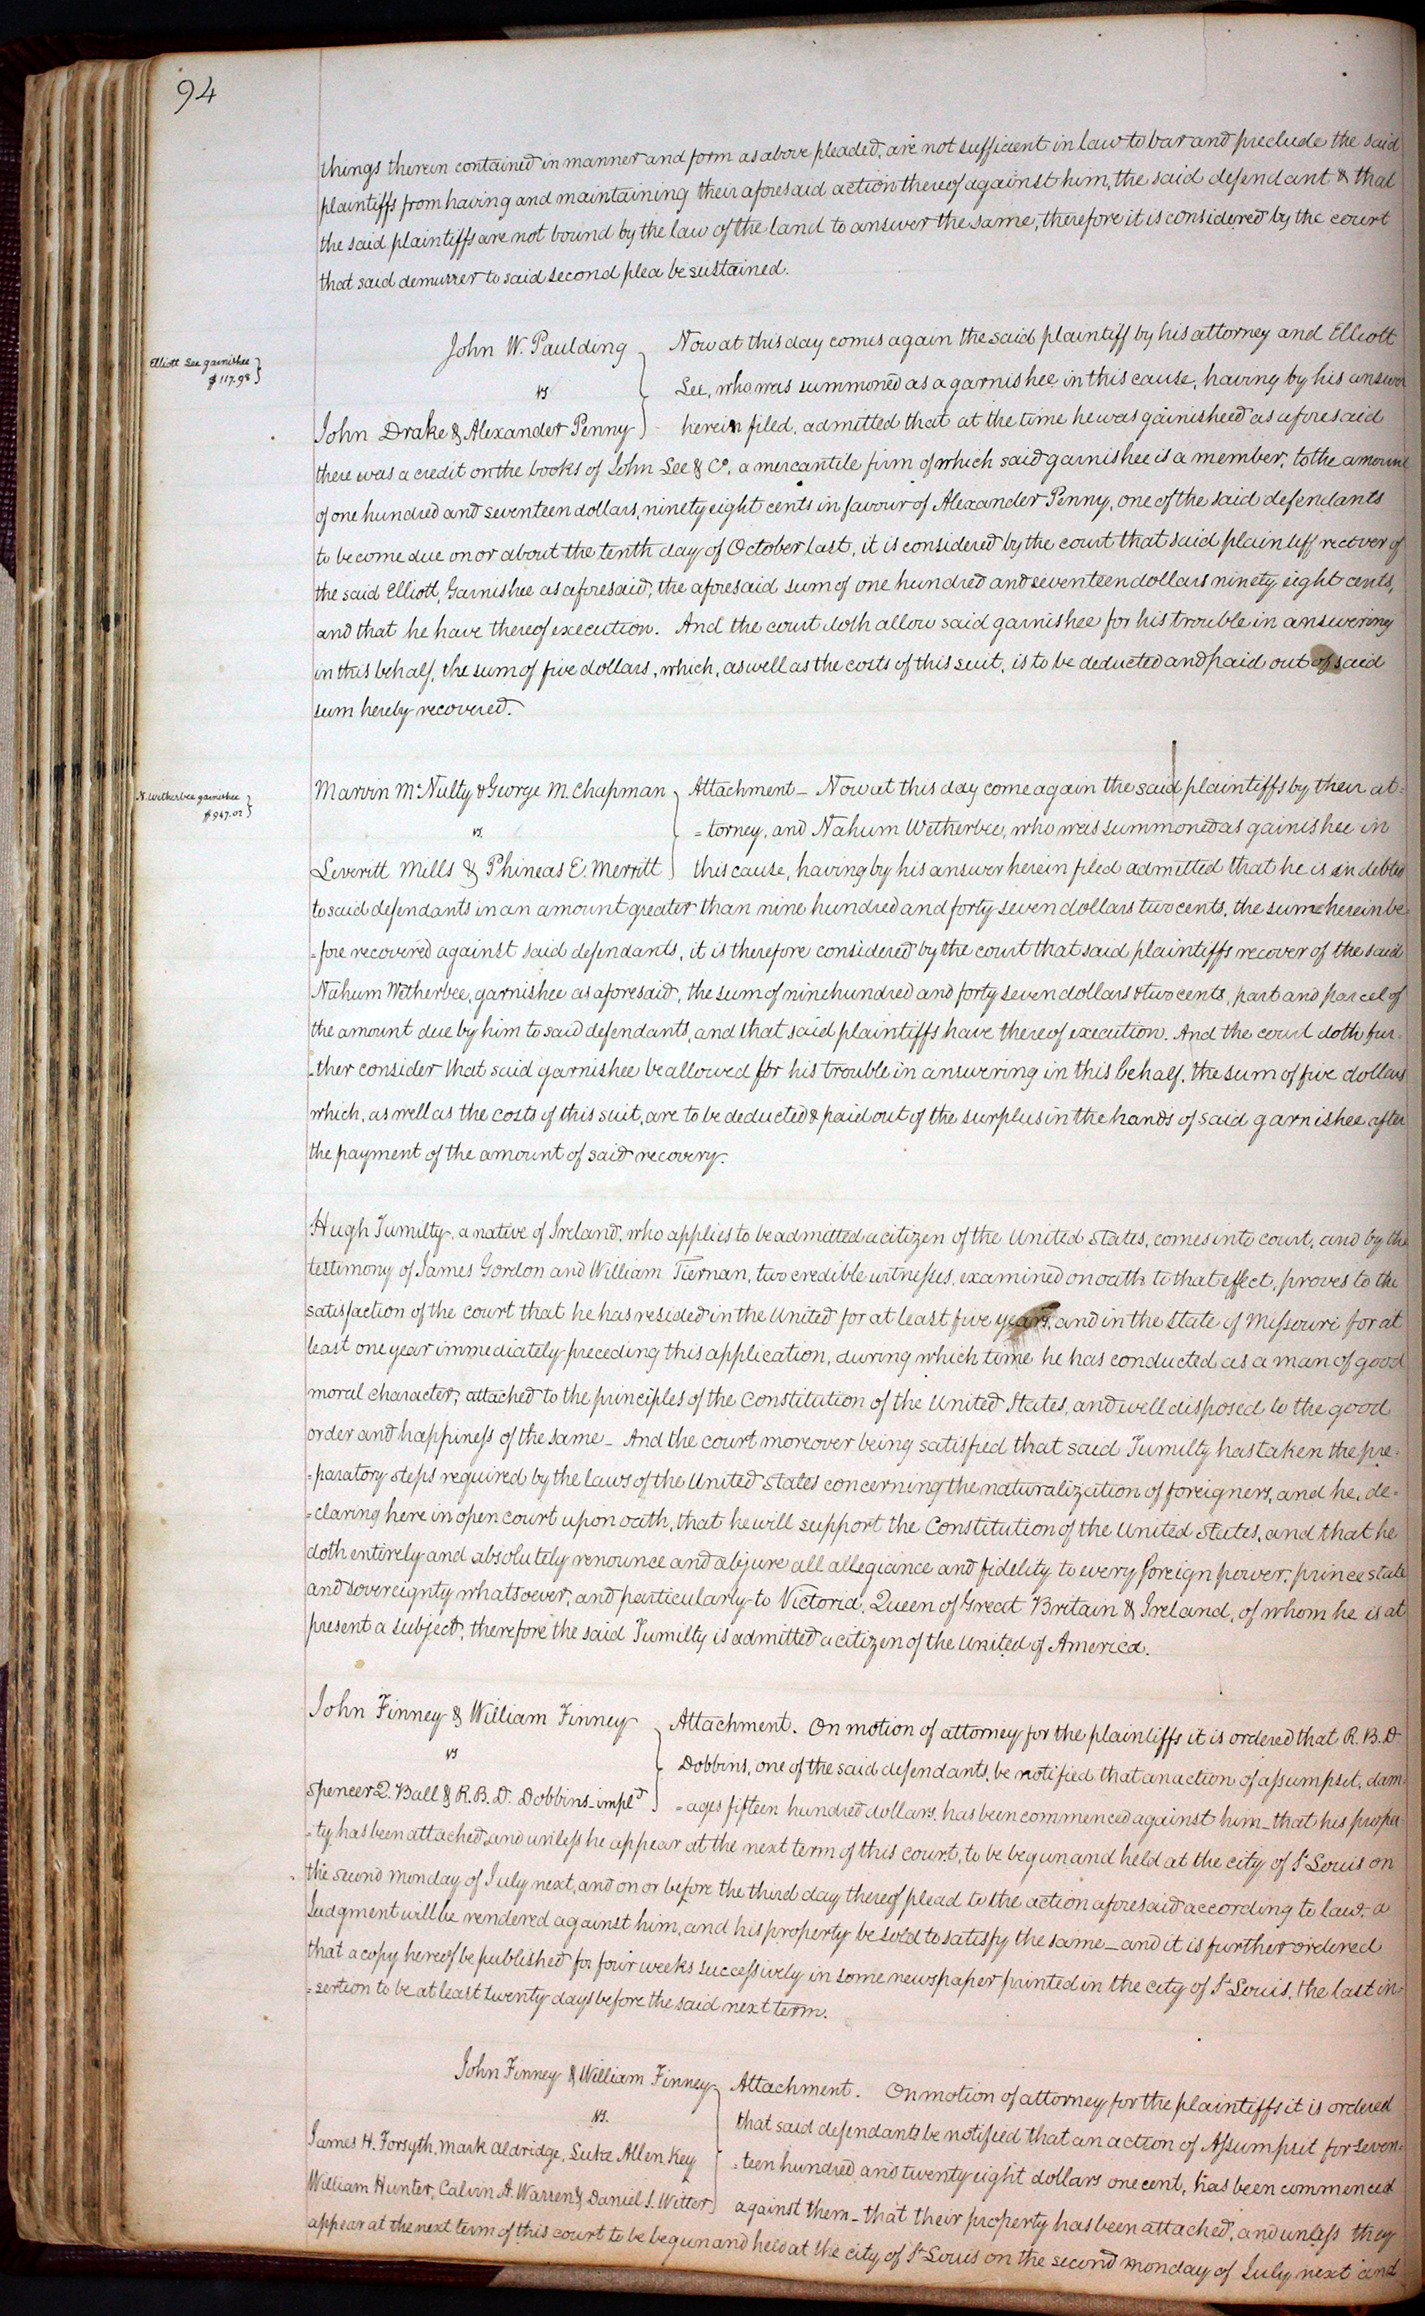 94
things therein contained in manner and form as above pleaded, are not sufficient in law to bar and preclude the said
plaintiffs from having and maintaining their aforesaid action thereof against him, the said defendant & that
the said plaintiffs are not bound by the law of the land to answer the same, therefore it is considered by the court
that said demurrer to said second plea be sustained.
Elliott Lee garnishee
$117.98
John W. Paulding
vs
John Drake & Alexander Penny
Now at this day comes again the said plaintiff by his attorney and Elliott
Lee, who was summoned as a garnishee in this cause, having by his answer
herein filed, admitted that at the time he was garnisheed as aforesaid
there was a credit on the books of John Lee & Co. a mercantile firm of which said garnishee is a member, to the amount
of one hundred and seventeen dollars, ninety eight cents in favour of Alexander Penny, one of the said defendants
to become due on or about the tenth day of October last, it is considered by the court that said plaintiff recover of
the said Elliott, Garnishee as aforesaid, the aforesaid sum of one hundred and seventeen dollars ninety eight cents,
and that he have thereof execution. And the court doth allow said garnishee for his trouble in answering
in this behalf, the sum of five dollars, which, as well as the costs of this suit, is to be deducted and paid out of said
sum hereby recovered.
N. Witherbee garnishee
$947.02
Marvin McNulty & George M. Chapman
vs.
Leveritt Mills & Phineas E. Merritt
Attachment - Now at this day come again the said plaintiffs by their at=
=torney, and Nahum Wetherbee, who was summoned as gainishee in
this cause, having by his answer herein filed admitted that he is indebted
to said defendants in an amount greater than nine hundred and forty seven dollars two cents, the sum herein be=
=fore recovered against said defendants, it is therefore considered by the court that said plaintiffs recover of the said
Nahum Witherbee, garnishee as aforesaid, the sum of nine hundred and forty seven dollars & two cents, part and parcel of
the amount due by him to said defendants, and that said plaintiffs have thereof execution. And the court doth fur=
=ther consider that said garnishee be allowed for his trouble in answering in this behalf, the sum of five dollars
which, as well as the costs of this suit, are to be deducted & paid out of the surplus in the hands of said garnishee after
the payment of the amount of said recovery.
Hugh Tumilty, a native of Ireland, who applies to be admitted a citizen of the United States, comes into court, and by the
testimony of James Gordon and William Tiernan, two credible witnesses, examined on oath to that effect, proves to the
satisfaction of the court that he has resided in the United for at least five years, and in the State of Missouri for at
least one year immediately preceding this application, during which time he has conducted as a man of good
moral character, attached to the principles of the Constitution of the United States, and well disposed to the good
order and happiness of the same - And the court moreover being satisfied that said Tumilty has taken the pre=
=paratory steps required by the laws of the United States concerning the naturalization of foreigners, and he, de=
=claring here in open court upon oath, that he will support the Constitution of the United States, and that he
doth entirely and absolutely renounce and abjure all allegiance and fidelity to every foreign power, prince state
and sovereignty whatsoever, and particularly to Victoria, Queen of Great Britain & Ireland, of whom he is at
present a subject, therefore the said Tumilty is admitted a citizen of the United of America.
John Finney & William Finney
vs
Spencer Q. Ball & R. B. D. Dobbins impld
Attachment. On motion of attorney for the plaintiffs it is ordered that R. B. D
Dobbins, one of the said defendants, be notified that an action of assumpsit, dam=
=ages fifteen hundred dollars, has been commenced against him - that his proper=
=ty has been attached, and unless he appear at the next term of this court, to be begun and held at the city of St Louis on
the second Monday of July next, and on or before the third day thereof plead to the action aforesaid according to law, a
Judgment will be rendered against him, and his property be sold to satisfy the same - and it is further ordered
that a copy hereof be published for four weeks successively in some newspaper printed in the city of St Louis, the last in=
=sertion to be at least twenty days before the said next term.
John Finney & William Finney
vs.
James H. Forsyth, Mark Aldridge, Luke Allen Key
William Hunter, Calvin A. Warren & Daniel S. Witter
Attachment. On motion of attorney for the plaintiffs it is ordered
that said defendants be notified that an action of Assumpsit for seven=
=teen hundred and twenty eight dollars one cent, has been commenced
against them - that their property has been attached, and unless they
appear at the next term of this court to be begun and held at the city of St Louis on the second Monday of July next and